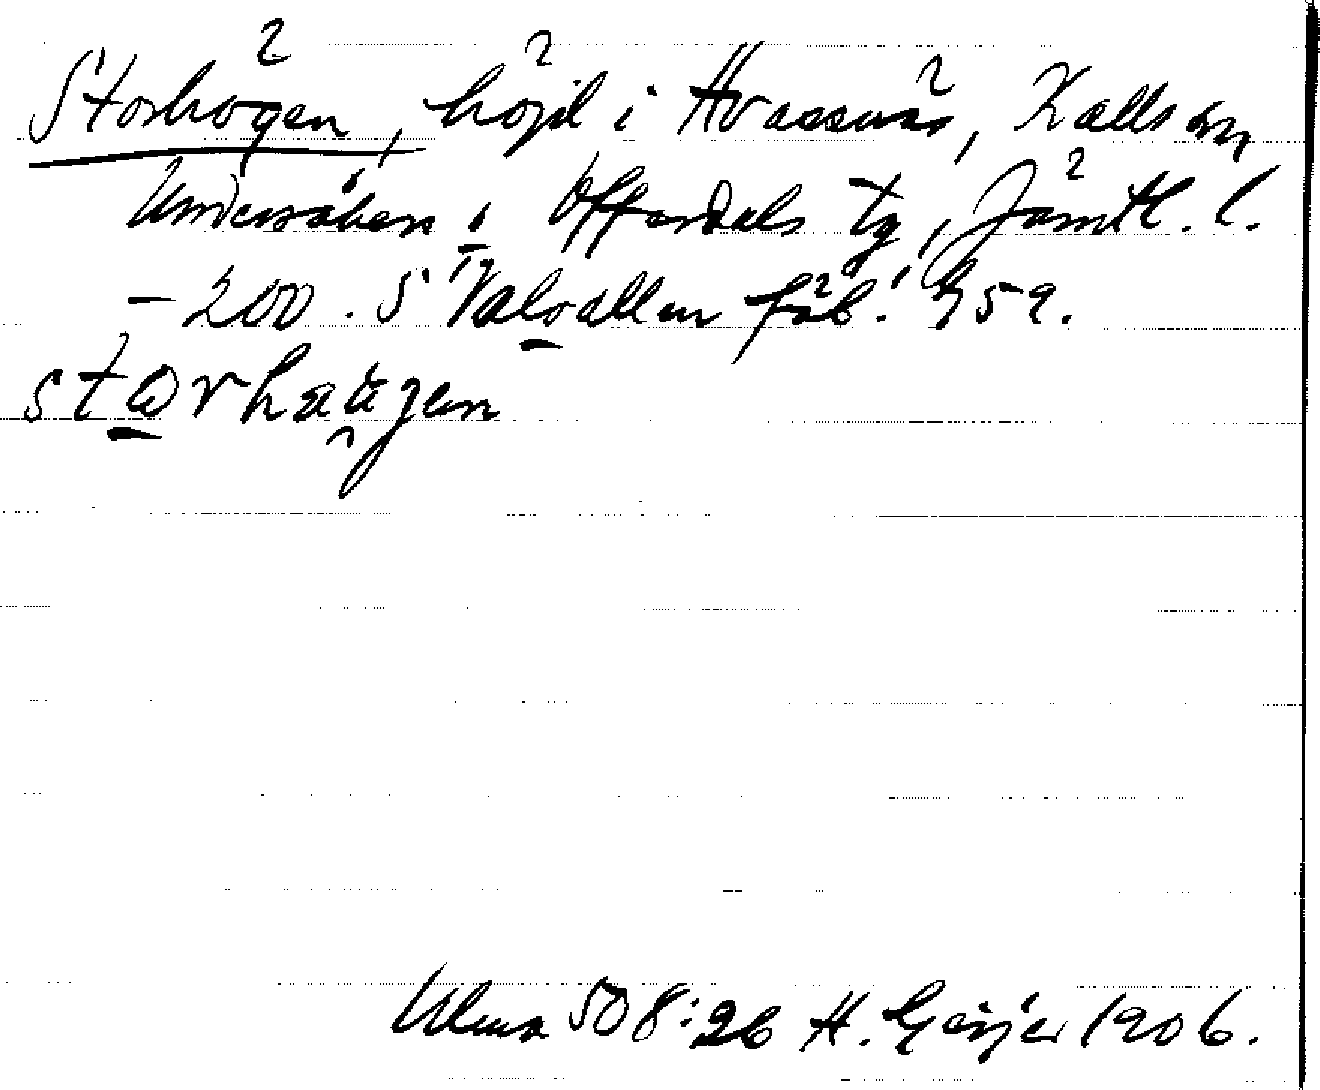 Storhögen, höjd i Kvassnäs, Kalls sn,
Undersåkers o. Offerdals tg, Jämtl. l.
– 200. S Valvallen fäb. 959.
starhaugen
Ulma 508:26 H. Geijer 1906.